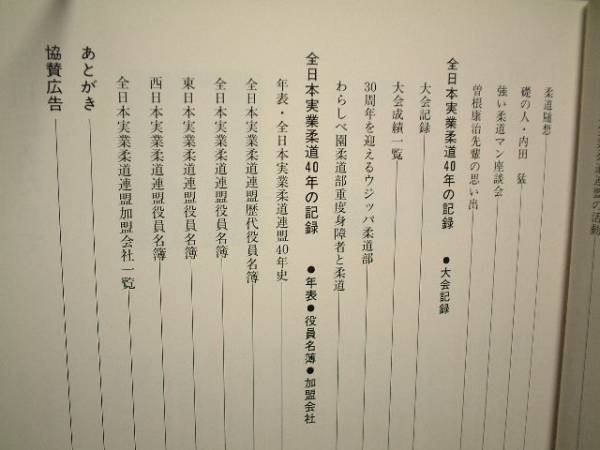 柔道随想
礎の人・内田　猛
強い柔道マン座談会
曽根康治先輩の思い出
全日本実業柔道40年の記録　●大会記録
大会記録
大会成績一覧
30周年を迎えるウジッパ柔道部
わらしべ園柔道部重度身障者と柔道
全日本実業柔道40年の記録　●年表●役員名簿●加盟会社
年表・全日本実業柔道連盟40年史
全日本実業柔道連盟歴代役員名簿
全日本実業柔道連盟役員名簿
東日本実業柔道連盟役員名簿
西日本実業柔道連盟役員名簿
全日本実業柔道連盟加盟会社一覧
あとがき
協賛広告